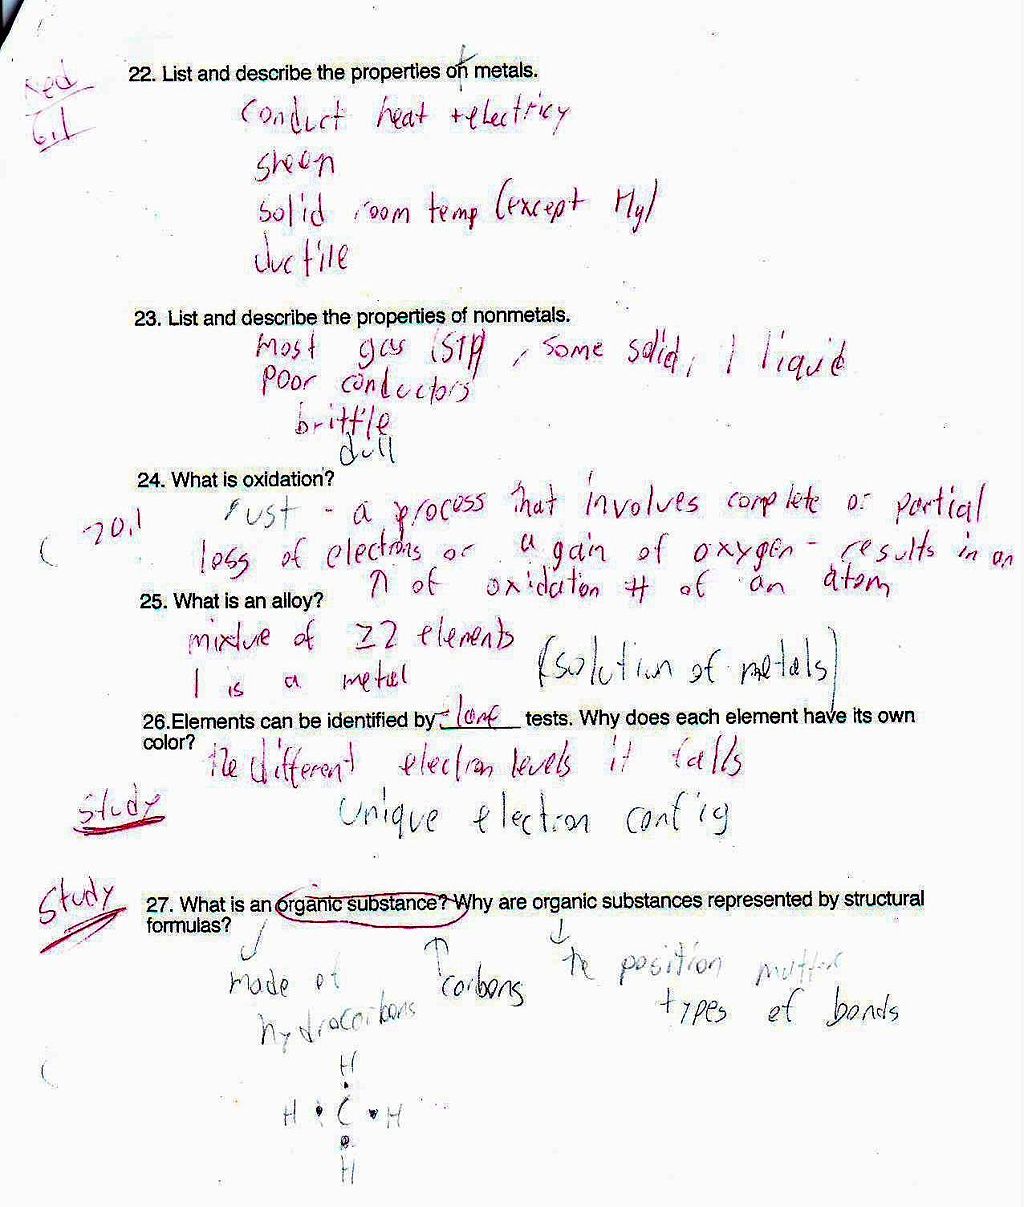 22. List and describe the properties on metals.
f
Read
6.1
conduct heat + electricy
sheen
solid room temp (except Hg)
ductile
23. List and describe the properties of nonmetals.
most gas (STP), some solid, 1 liquid
poor conductors
brittle
dull
24. What is oxidation?
20.1
rust - a process that involves complete or partial
loss of electrons or a gain of oxygen - results in an
↑ of oxidation # of an atom
25. What is an alloy?
mixture of ≥2 elements
1 is a metal
(solution of metals)
26.Elements can be identified by flame tests. Why does each element have its own
color?
the different electron levels it falls
Study
unique electron config
Study
27. What is an organic substance? Why are organic substances represented by structural
formulas?
made of
hydrocarbons
carbons
the position matters
types of bonds
H
H • C • H
H